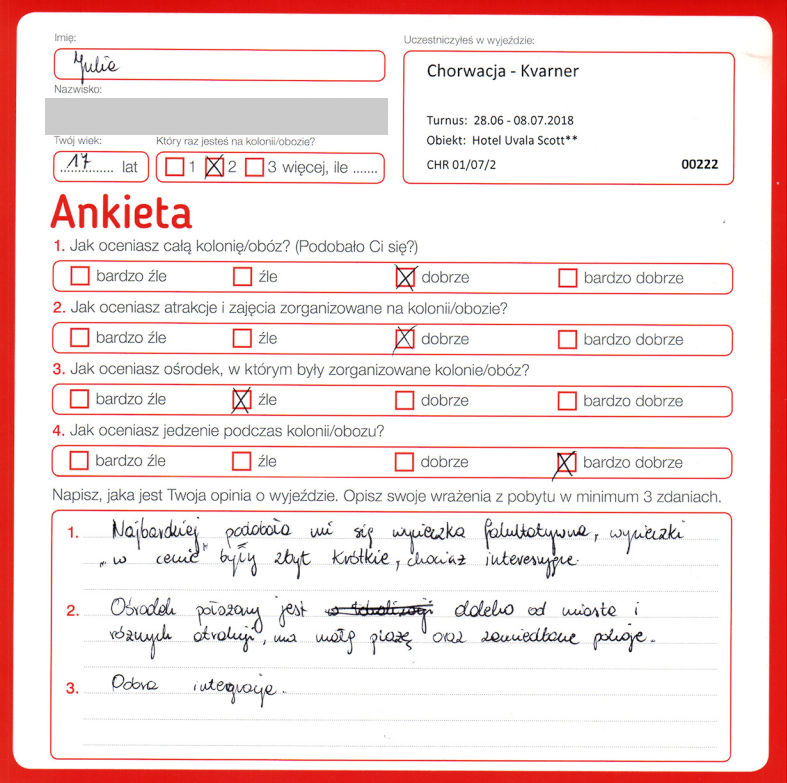 Imię:
Julia
Nazwisko:
Twój wiek:
17 lat
Który raz jesteś na kolonii/obozie?
1 2 3 więcej, ile .......
Uczestniczyłeś w wyjeździe:
Chorwacja - Kvarner
Turnus: 28.06 - 08.07.2018
Obiekt: Hotel Uvala Scott**
CHR 01/07/2 00222
Ankieta
1. Jak oceniasz całą kolonię/obóz? (Podobało Ci się?)
bardzo źle źle dobrze bardzo dobrze
2. Jak oceniasz atrakcje i zajęcia zorganizowane na kolonii/obozie?
bardzo źle źle dobrze bardzo dobrze
3. Jak oceniasz ośrodek, w którym były zorganizowane kolonie/obóz?
bardzo źle źle dobrze bardzo dobrze
4. Jak oceniasz jedzenie podczas kolonii/obozu?
bardzo źle źle dobrze bardzo dobrze
Napisz, jaka jest Twoja opinia o wyjeździe. Opisz swoje wrażenia z pobytu w minimum 3 zdaniach.
1. Najbardziej podobała mi się wycieczka fakultatywna, wycieczki
„w cenie" były zbyt krótkie, chociaż interesujące.
2. Ośrodek położony jest daleko od miasta i
różnych atrakcji, ma małą plażę oraz zaniedbane pokoje.
3. Dobra integracja.